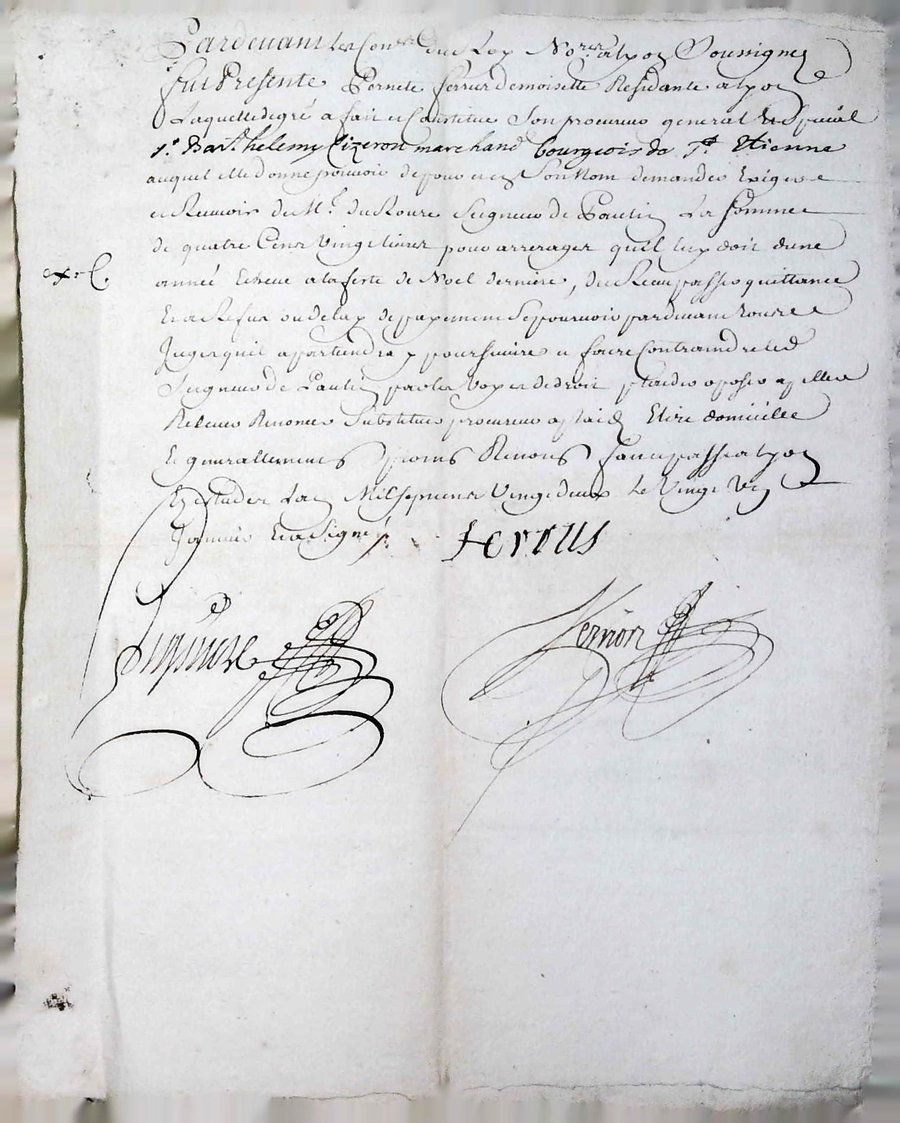 Pardevant les Con.ers du Roy No.res a Lyon Soussignez
fut Presente Pernete ferrus demoiselle Residante a Lyon
Laquelle de gré a fait et Constitue Son procureur general et special
s.r Barthelemy Cizeron marchand bourgeois de S.t Etienne
auquel elle donne pouvoir de pour et en Son Nom demander Exiger
et Recevoir de M.r du Roure Seigneur de La Somme
de quatre Cent Vingt livres pour arrerages quil luy doit dune
année Echeue a la feste de Noel derniere, du Receu passer quittance
Et a Refus ou delay de payement Se pourvoir pardevant tous
Juges quil apartiendra y poursuivre et faire Contraindre led
Seigneur de par les voyes de droit plaider oposer apeller
Relever Renoncer Substituer procureur a plaid Elire domicille
Et generallement promt Renont fait et passé a Lyon
Es etudes Lan Mil sept cent Vingt deux le Vingt
Janvier Et a Signé
ferrus
Vernon